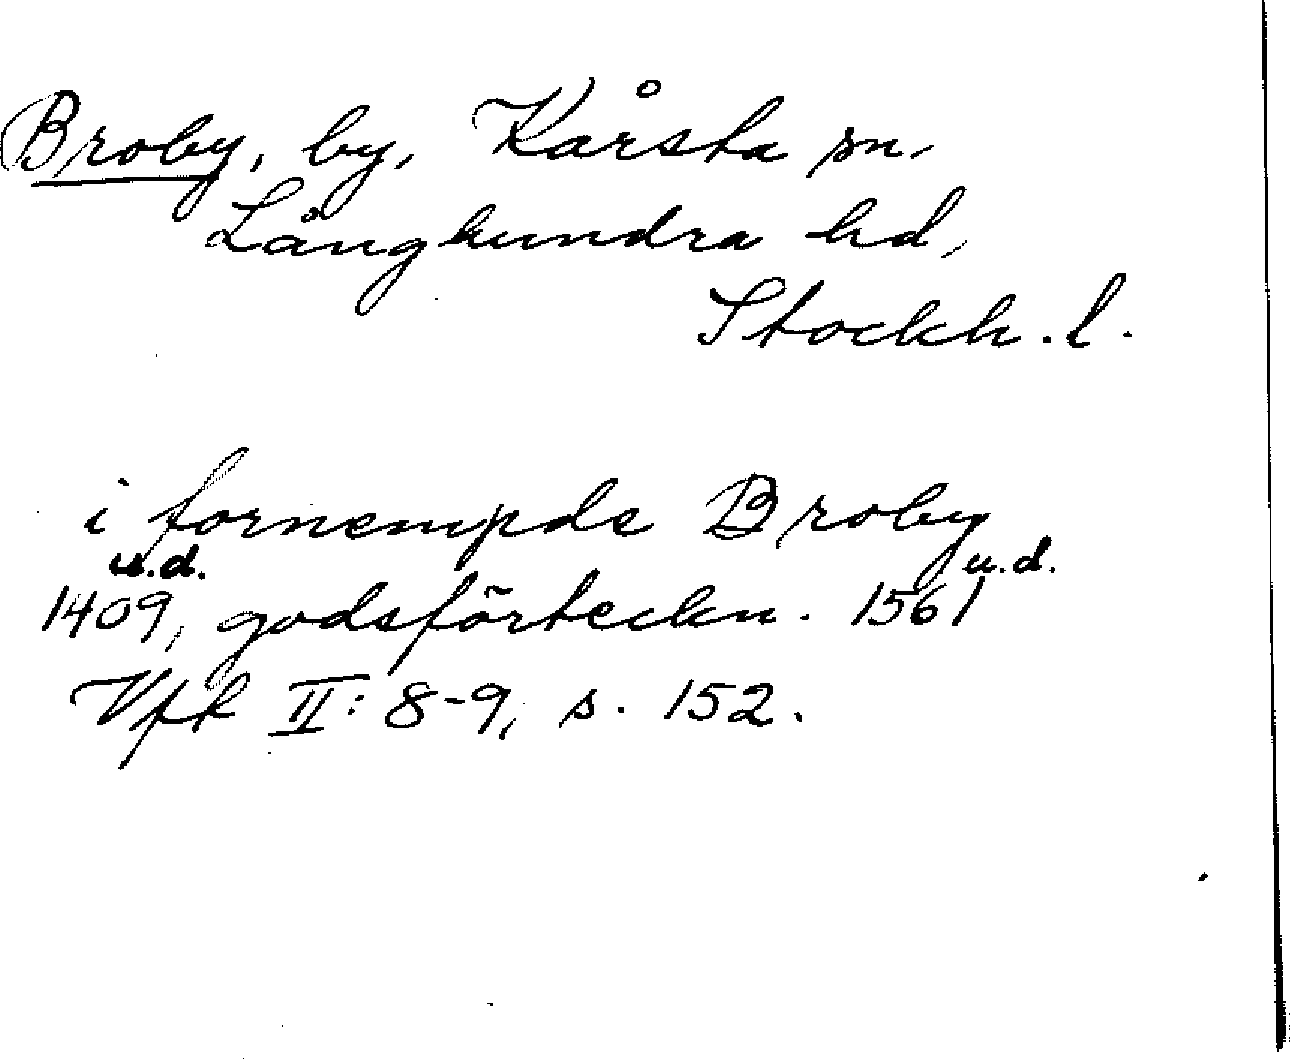 Broby, by, Kårsta sn,
Långhundra hd,
Stockh. l.
i fornempde Broby
u.d. u.d.
1409, godsförteckn. 1561
Vfk II: 8-9, s. 152.